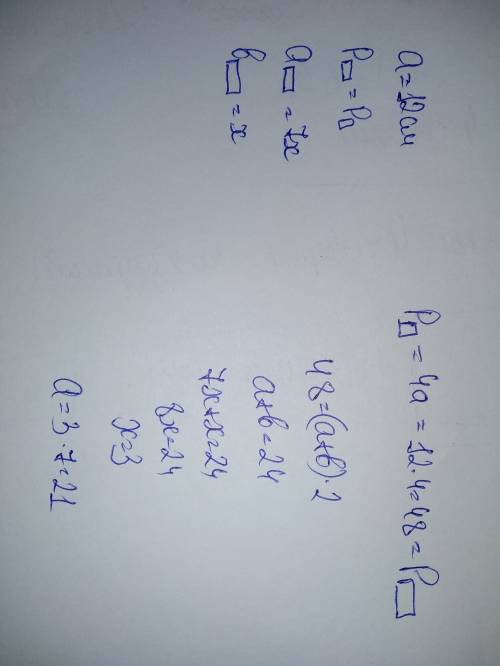 a=12см
P□ = P▯
a▭ = 7x
b▭ = x
P□ = 4a = 12·4=48= P▭
48=(a+b)·2
a+b=24
7x+x=24
8x=24
x=3
a=3·7=21